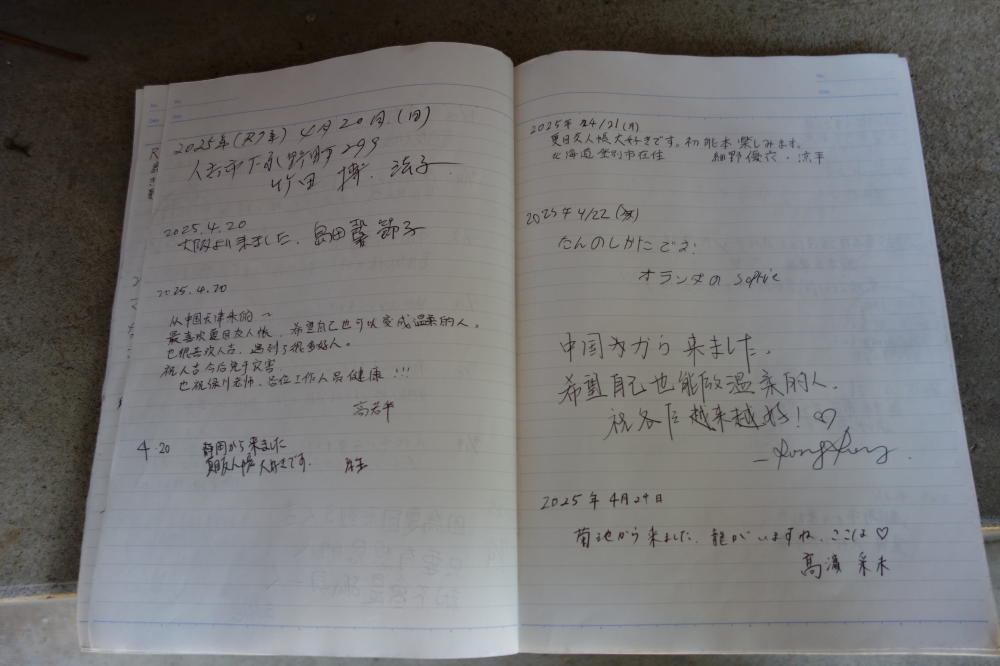 2025年(R7年) 4月20日(日)
人吉市下永野町299
竹田 博 法子
2025.4.20
大阪より来ました。島田馨 節子
2025.4.20
从中国天津来的~
最喜欢夏目友人帐,希望自己也可以变成温柔的人。
也很喜欢人吉,遇到了很多好人。
祝人吉今后免于灾害,
也祝绿川老师、各位工作人员健康!!!
4.20 静岡から来ました
夏目友人帳大好きです。
2025年4/21(月)
夏目友人帳大好きです。初熊本楽しみます。
北海道登別市在住 細野優衣・涼平
2025年4/22(火)
たんのしかにごえ!
オランダのSophie
中国から来ました。
希望自己也能做温柔的人。
祝各位越来越好!♡
2025年4月29日
菊池から来ました。龍がいますね、ここは♡
高濱